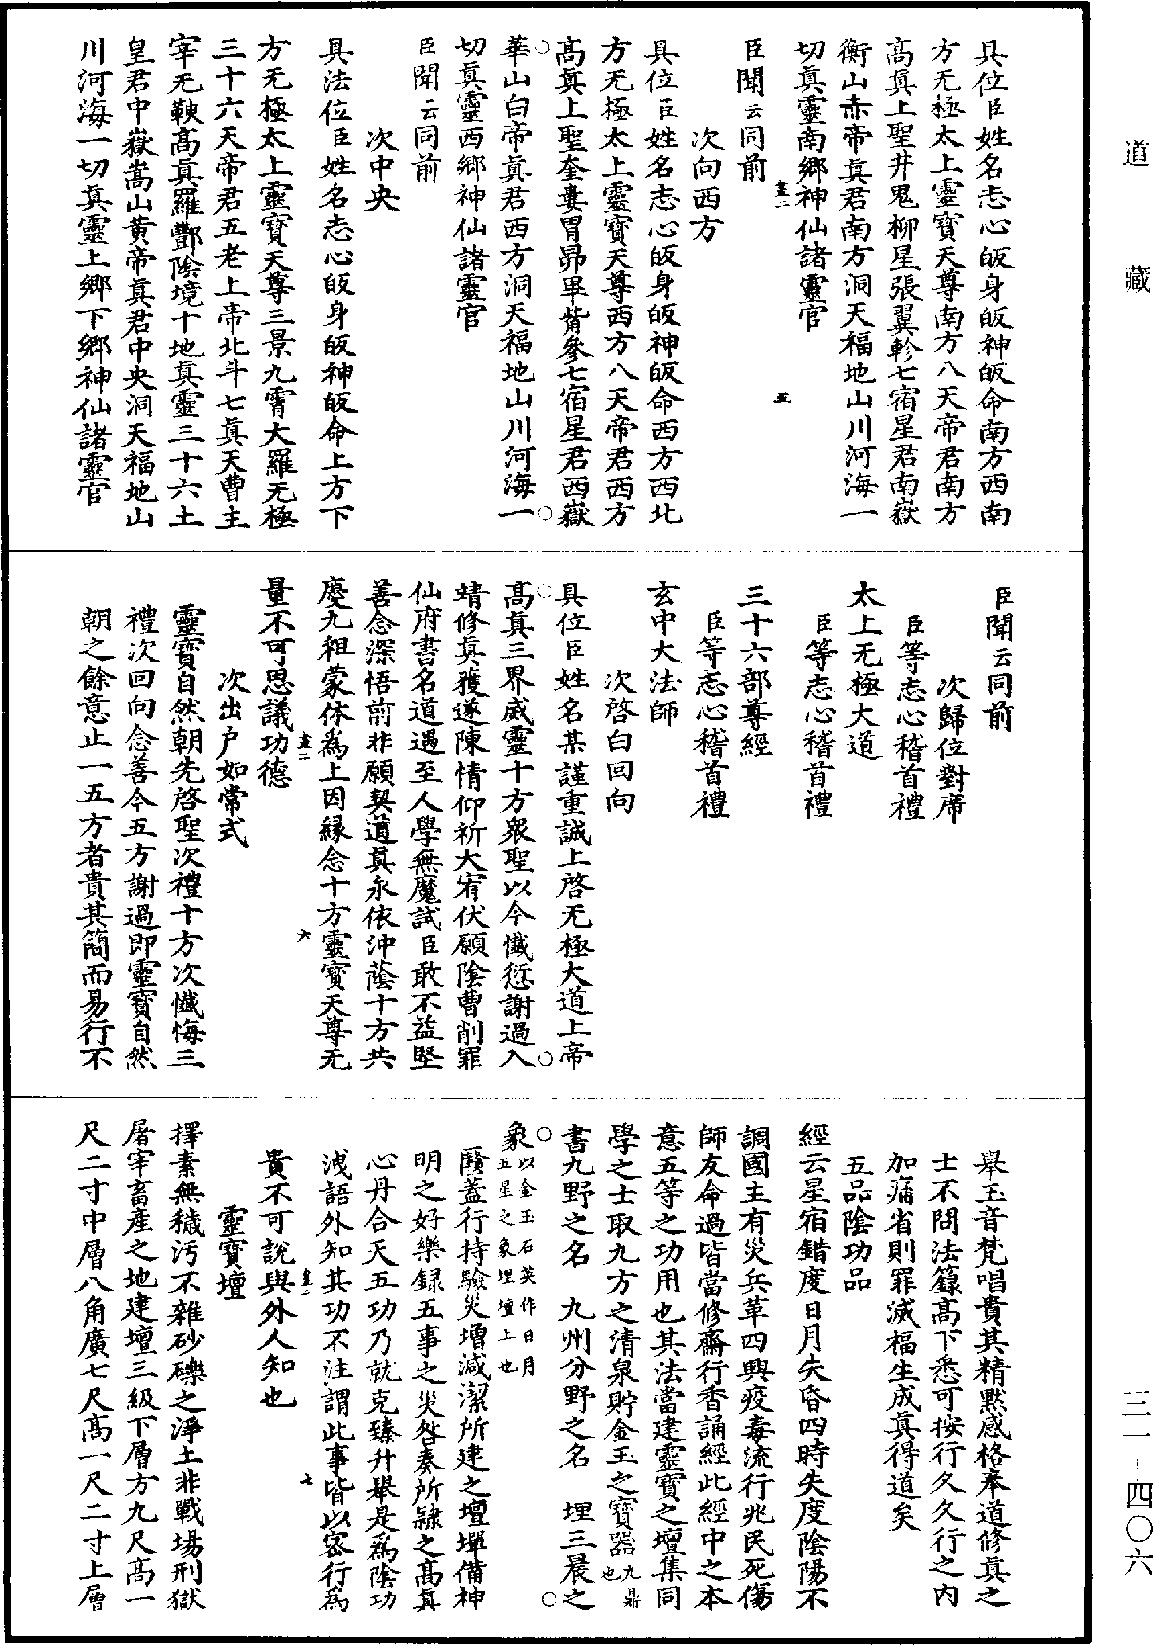 道藏
三一－四〇六
具位臣姓名志心皈身皈神皈命南方西南
方无極太上靈寳天尊南方八天帝君南方
高真上聖井鬼柳星張翼軫七宿星君南嶽
衡山赤帝真君南方洞天福地山川河海一
切真靈南鄉神仙諸靈官
五
臣聞云同前
次向西方
具位臣姓名志心皈身皈神皈命西方西北
方无極太上靈寳天尊西方八天帝君西方
高真上聖奎婁胃昴畢觜參七宿星君西嶽
華山白帝真君西方洞天福地山川河海一
切真靈西鄉神仙諸靈官
臣聞云同前
次中央
具法位臣姓名志心皈身皈神皈命上方下
方无極太上靈寳天尊三景九霄大羅无極
三十六天帝君五老上帝北斗七真天曹主
宰无鞅高真羅酆陰境十地真靈三十六土
皇君中嶽嵩山黄帝真君中央洞天福地山
川河海一切真靈上鄉下鄉神仙諸靈官
臣聞云同前
次歸位對席
臣等志心稽首禮
太上无極大道
臣等志心稽首禮
三十六部尊經
臣等志心稽首禮
玄中大法師
次啓白回向
具位臣姓名某謹重誠上啓无極大道上帝
高真三界威靈十方衆聖以今懺愆謝過入
靖修真獲遂陳情仰祈大宥伏願陰曹削罪
仙府書名道遇至人學無魔試臣敢不益堅
善念深悟前非願契道真永依沖蔭十方共
慶九祖蒙休爲上因緣念十方靈寳天尊无
六
量不可思議功德
次出户如常式
靈寳自然朝先啓聖次禮十方次懺悔三
禮次回向念善今五方謝過即靈寳自然
朝之餘意止一五方者貴其簡而易行不
舉玉音梵唱貴其精默感格奉道修真之
士不問法籙高下悉可按行久久行之内
加痛省則罪滅福生成真得道矣
五品陰功品
經云星宿錯度日月失昏四時失度陰陽不
調國主有災兵革四興疫毒流行兆民死傷
師友命過皆當修齋行香誦經此經中之本
意五等之功用也其法當建靈寳之壇集同
學之士取九方之清泉貯金玉之寳器九鼎也
書九野之名　九州分野之名　埋三晨之
象以金玉石英作日月五星之象埋壇上也
醫蓋行持驗災增減潔所建之壇墠備神
明之好樂録五事之災咎奏所隷之高真
心丹合天五功乃就克臻升舉是爲陰功
洩語外知其功不注謂此事皆以密行爲
七
貴不可說與外人知也
靈寳壇
擇素無穢汚不雜砂礫之淨土非戰場刑獄
屠宰畜産之地建壇三級下層方九尺高一
尺二寸中層八角廣七尺高一尺二寸上層